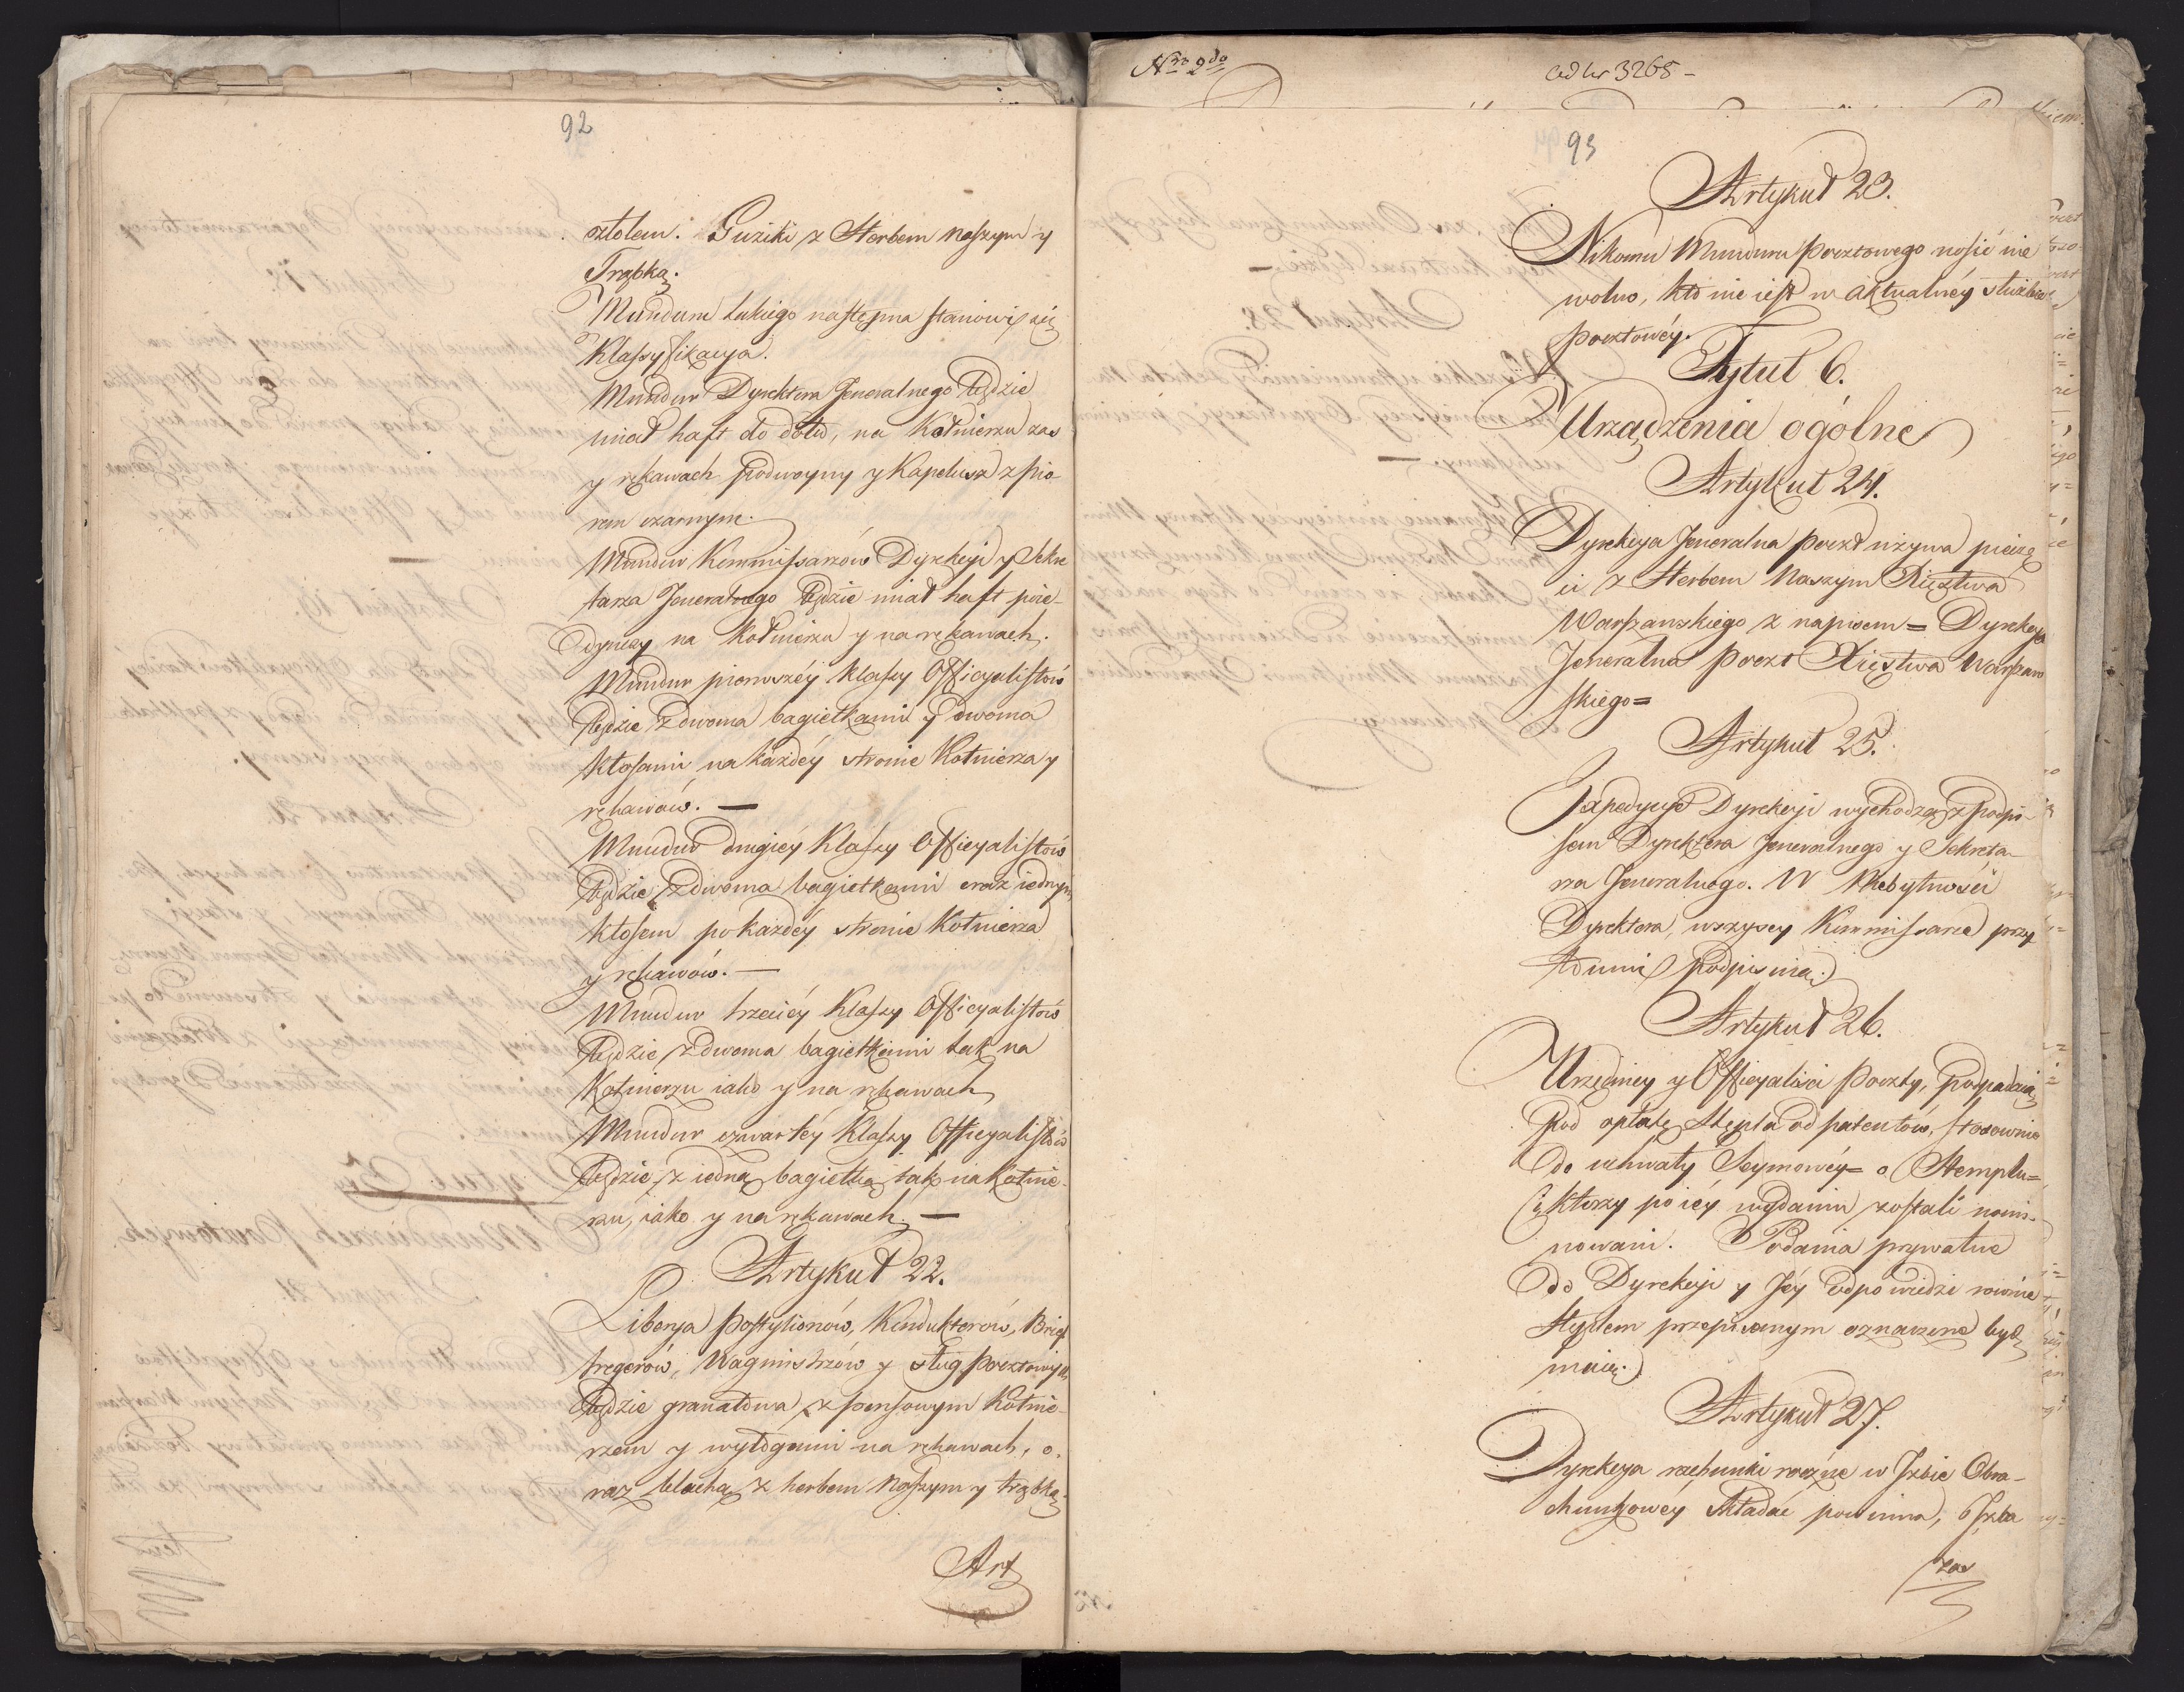 92
złotem. Guziki z Herbem Naszym y
Trąbką.
Munduru takiego następna stanowi się
Klassyfikacya.
Mundur Dyrektora Jeneralnego będzie
miał haft do dołu, na Kołnierzu zaś
y rękawach podwoyny y Kapelusz z pió-
rem czarnym.
Mundur Kommissarzów Dyrekcyi y Sekre
tarza Jeneralnego będzie miał haft poie-
dynczy na Kołnierzu y na rękawach.
Mundur pierwszéy Klassy Officyalistów
będzie z dwoma bagietkami y dwoma
kłosami na każdéy stronie Kołnierza y
rękawów. —
Mundur drugiéy Klassy Officyalistów
będzie z dwoma bagietkami oraz iednym
kłosem po każdéy stronie Kołnierza
y rękawów. —
Mundur trzeciéy Klassy Officyalistów
będzie z dwoma bagietkami tak na
Kołnierzu iako y na rękawach
Mundur czwartéy Klassy Officyalistów
będzie z iedną bagietką tak na Kołnie-
rzu, iako y na rękawach. —
Artykuł 22.
Liberya Postylionów, Konduktorów, Brief
tregerów, Wagmistrzów y sług pocztowych
będzie granatowa z ponsowym Kołnie-
rzem y wyłogami na rękawach, o-
raz blachą z herbem Naszym y trąbką.
Art
Nro 2do
ad Nr 3265 -
93
Artykuł 23.
Nikomu Munduru pocztowego nosić nie
wolno, kto nie iest w aktualnéy służbie
pocztowéy.
Tytuł 6.
Urządzenia ogólne
Artykuł 24.
Dyrekcya Jeneralna poczt używa pieczę
ci z Herbem Naszym Xięstwa
Warszawskiego z napisem = Dyrekcya
Jeneralna poczt Xięstwa Warszaw
skiego =
Artykuł 25.
Expedycye Dyrekcyi wychodzą z podpi-
sem Dyrektora Jeneralnego y Sekreta-
rza Jeneralnego. W Niebytności
Dyrektora, wszyscy Kommissarze przy
tomni podpisuią.
Artykuł 26.
Urzędnicy y Officyaliści Poczty, podpadaią
pod opłatę Stępla od patentów, stosownie
do uchwały Seymowéy = o Stemplu =
Ci, którzy po iéy wydaniu zostali nomi-
nowani. Podania prywatne
do Dyrekcyi y Jéy odpowiedzi równie
Stęplem przepisanym oznaczone być
maią.
Artykuł 27.
Dyrekcya rachunki roczne w Izbie Obra-
chunkowéy składać powinna, Izba
zaś